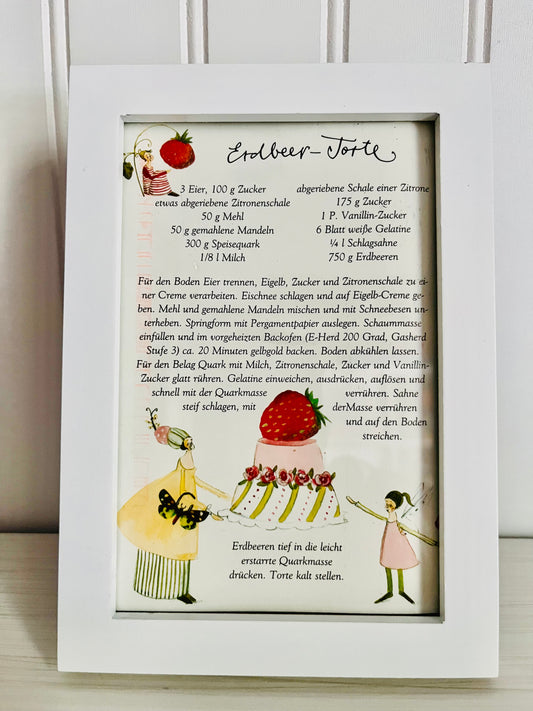 Erdbeer-Torte
3 Eier, 100 g Zucker
etwas abgeriebene Zitronenschale
50 g Mehl
50 g gemahlene Mandeln
300 g Speisequark
1/8 l Milch
abgeriebene Schale einer Zitrone
175 g Zucker
1 P. Vanillin-Zucker
6 Blatt weiße Gelatine
¼ l Schlagsahne
750 g Erdbeeren
Für den Boden Eier trennen, Eigelb, Zucker und Zitronenschale zu ei-
ner Creme verarbeiten. Eischnee schlagen und auf Eigelb-Creme ge-
ben. Mehl und gemahlene Mandeln mischen und mit Schneebesen un-
terheben. Springform mit Pergamentpapier auslegen. Schaummasse
einfüllen und im vorgeheizten Backofen (E-Herd 200 Grad, Gasherd
Stufe 3) ca. 20 Minuten gelbgold backen. Boden abkühlen lassen.
Für den Belag Quark mit Milch, Zitronenschale, Zucker und Vanillin-
Zucker glatt rühren. Gelatine einweichen, ausdrücken, auflösen und
schnell mit der Quarkmasse verrühren. Sahne
steif schlagen, mit derMasse verrühren
und auf den Boden
streichen.
Erdbeeren tief in die leicht
erstarrte Quarkmasse
drücken. Torte kalt stellen.